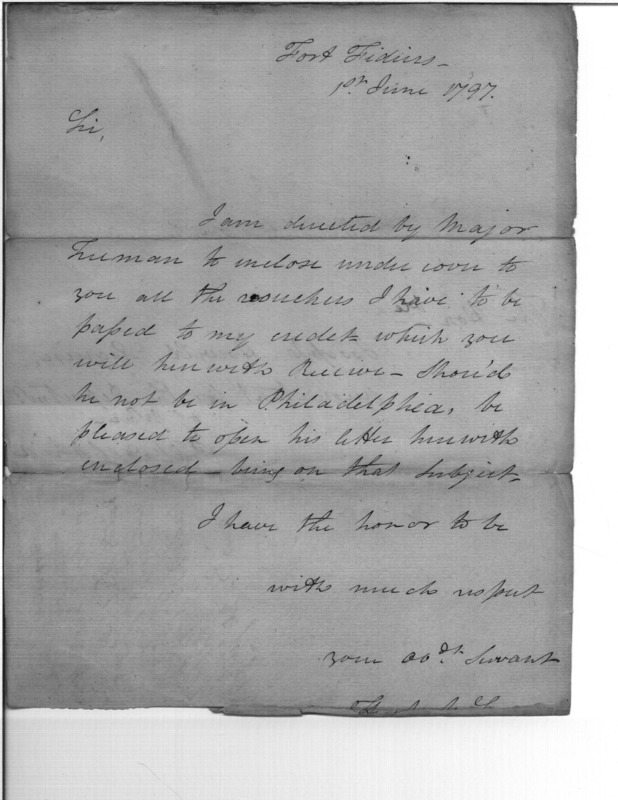 Fort Fidius –
1st June 1797.
Sir,
I am directed by Major
Freeman to enclose under cover to
you all the vouchers I have to be
passed to my credit – which you
will herewith Receive – Shou'd
he not be in Philadelphia, be
pleased to open his letter herewith
enclosed – being on that Subject –
I have the honor to be
with much respect
your obdt. Servant